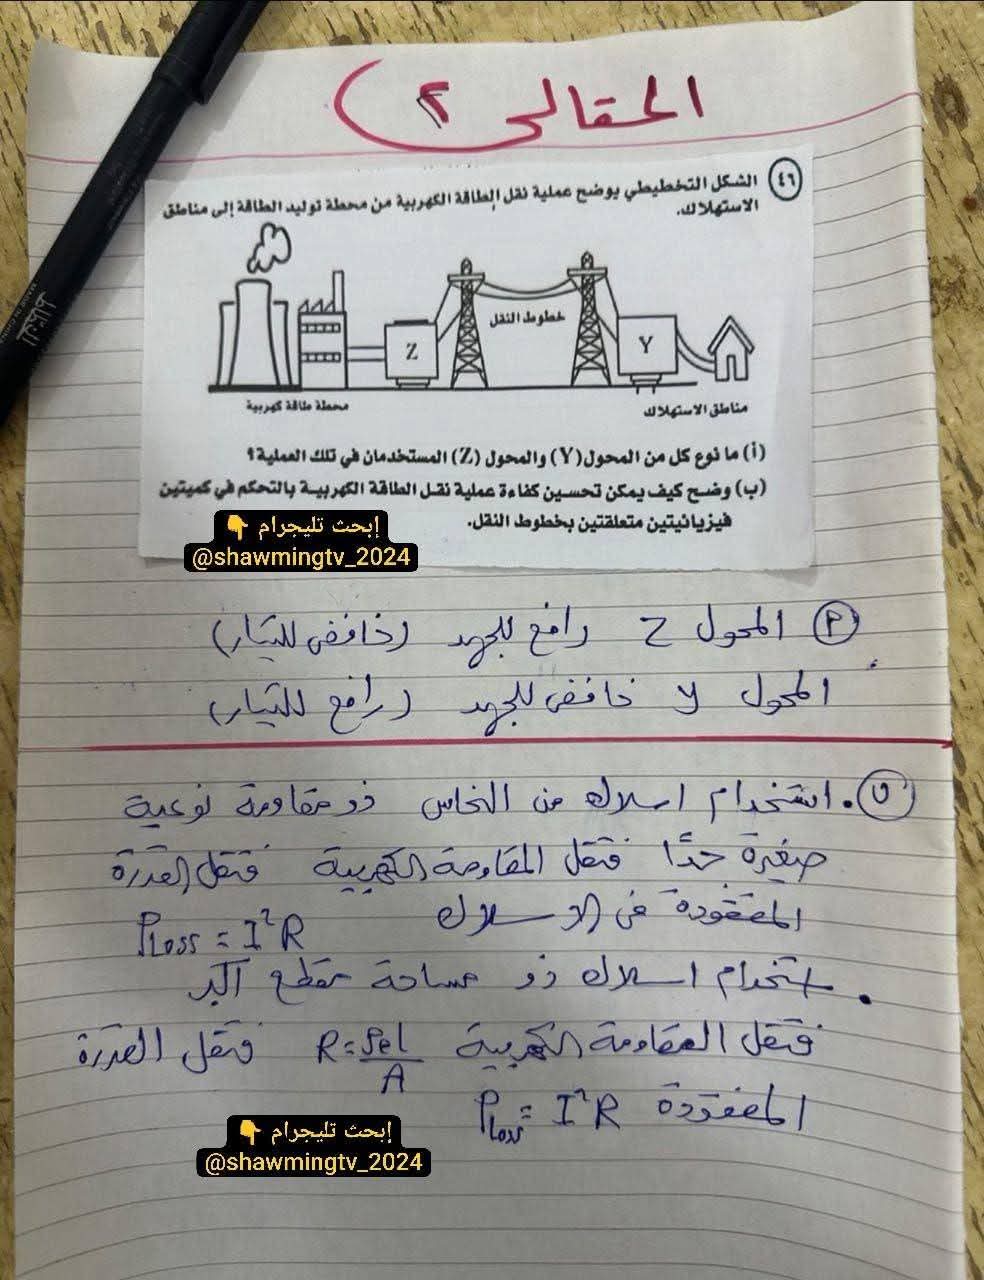 المقالى ٢
٤٦ الشكل التخطيطي يوضح عملية نقل الطاقة الكهربية من محطة توليد الطاقة إلى مناطق
الاستهلاك.
خطوط النقل
Z
Y
محطة طاقة كهربية
مناطق الاستهلاك
(أ) ما نوع كل من المحول (Y) والمحول (Z) المستخدمان في تلك العملية؟
(ب) وضح كيف يمكن تحسين كفاءة عملية نقل الطاقة الكهربية بالتحكم في كميتين
فيزيائيتين متعلقتين بخطوط النقل.
إبحث تليجرام 👇
@shawmingtv_2024
أ المحول Z رافع للجهد (خافض للتيار)
المحول y خافض للجهد (رافع للتيار)
ب . استخدام اسلاك من النحاس ذو مقاومة نوعية
صغيرة جدًا فتقل المقاومة الكهربية فتقل القدرة
المفقودة فى الاسلاك
P Loss = I²R
. استخدام اسلاك ذو مساحة مقطع اكبر
فتقل المقاومة الكهربية R = ρe l / A فتقل القدرة
المفقودة P Loss = I²R
إبحث تليجرام 👇
@shawmingtv_2024